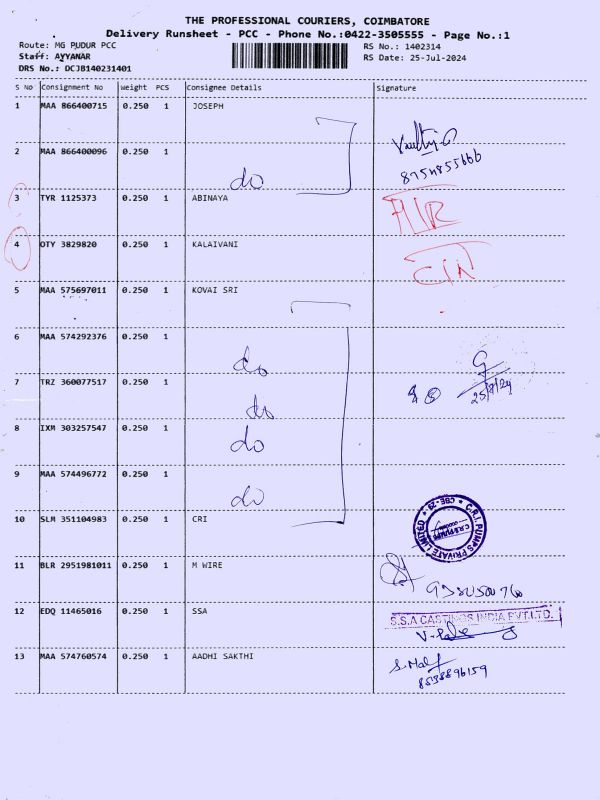 THE PROFESSIONAL COURIERS, COIMBATORE
Delivery Runsheet - PCC - Phone No.:0422-3505555 - Page No.:1
Route: MG PUDUR PCC RS No.: 1402314
Staff: AYYANAR RS Date: 25-Jul-2024
DRS No.: DCJB140231401
S No Consignment No Weight PCS Consignee Details Signature
1 MAA 866400715 0.250 1 JOSEPH
2 MAA 866400096 0.250 1 do
3 TYR 1125373 0.250 1 ABINAYA
4 OTY 3829820 0.250 1 KALAIVANI
5 MAA 575697011 0.250 1 KOVAI SRI
6 MAA 574292376 0.250 1 do
7 TRZ 360077517 0.250 1 do
8 IXM 303257547 0.250 1 do
9 MAA 574496772 0.250 1 do
10 SLM 351104983 0.250 1 CRI C.R.I. PUMPS PRIVATE LIMITED
11 BLR 2951981011 0.250 1 M WIRE
12 EDQ 11465016 0.250 1 SSA S.S.A CASTINGS INDIA PVT.LTD.
13 MAA 574760574 0.250 1 AADHI SAKTHI
8538896159